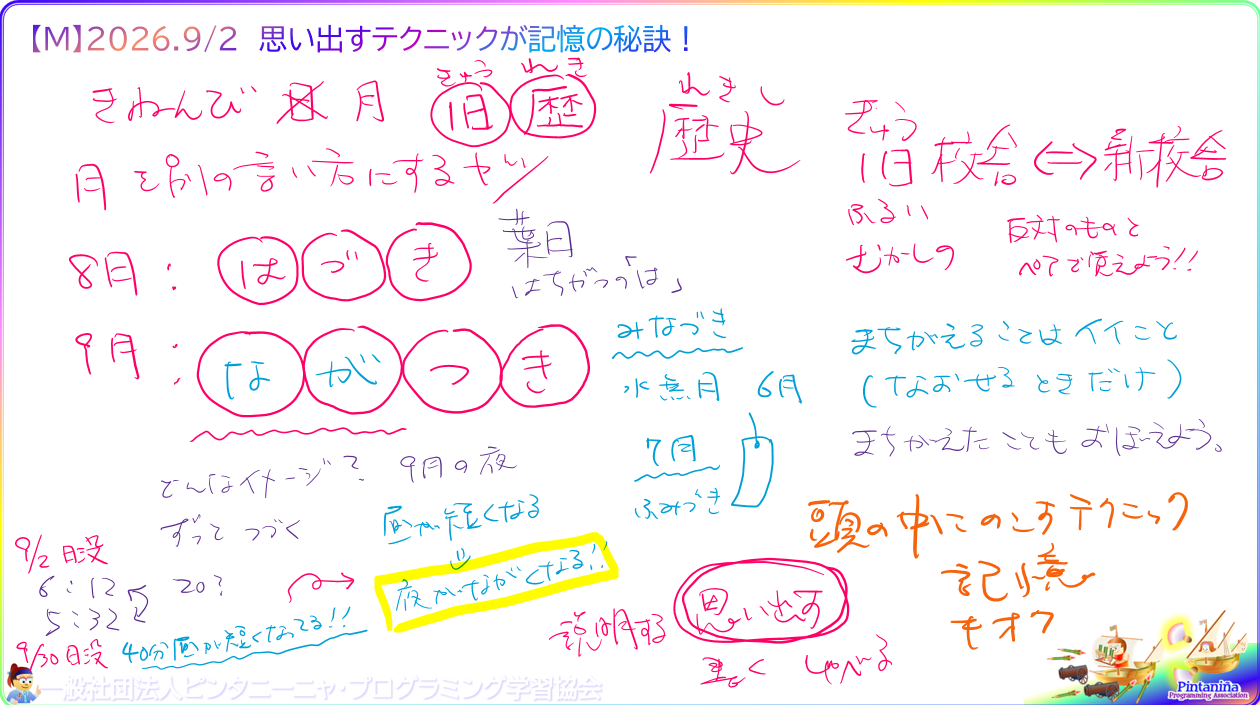 【M】2026.9/2 思い出すテクニックが記憶の秘訣！
きねんび 月
きゅう れき
旧 歴
れきし
歴史
きゅう
旧校舎 ⇔ 新校舎
ふるい
むかしの
反対のものと
ペアで覚えよう!!
月を別の言い方にするヤツ
8月： はづき
葉月
はちがつの「は」
9月： ながつき
みなづき
水無月 6月
7月
ふみづき
まちがえることはイイこと
(なおせるときだけ)
まちがえたこともおぼえよう。
どんなイメージ？ 9月の夜
ずって つづく
昼が短くなる
夜がながくなる!!
9/2 日没
6:12
20?
5:32
9/30日没
40分昼が短くなってる!!
頭の中にのこすテクニック
記憶
キオク
説明する
思い出す
書く しゃべる
一般社団法人ピンタニーニャ・プログラミング学習協会
Pintanina
Programming Association